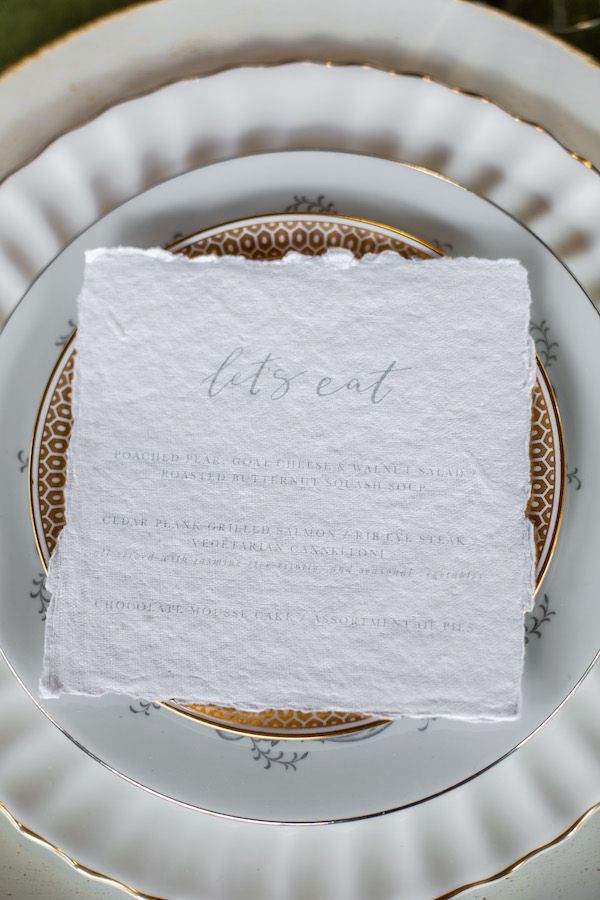 let's eat
POACHED PEAR, GOAT CHEESE & WALNUT SALAD /
ROASTED BUTTERNUT SQUASH SOUP
CEDAR PLANK GRILLED SALMON / RIB EYE STEAK
VEGETARIAN CANNELLONI
all served with jasmine rice risotto, and seasonal vegetables
CHOCOLATE MOUSSE CAKE / ASSORTMENT OF PIES